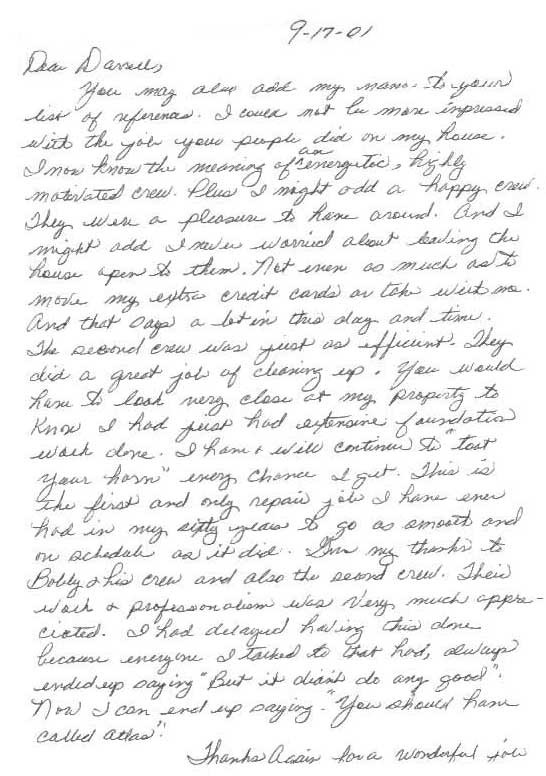 9-17-01
Dear Darrell,
You may also add my name to your
list of references. I could not be more impressed
with the job your people did on my house.
I now know the meaning of an energetic, highly
motivated crew. Plus I might add a happy crew.
They were a pleasure to have around. And I
might add I never worried about leaving the
house open to them. Not even as much as to
move my extra credit cards or take with me.
And that says a lot in this day and time.
The second crew was just as efficient. They
did a great job of cleaning up. You would
have to look very close at my property to
know I had just had extensive foundation
work done. I have & will continue to "toot
your horn" every chance I get. This is
the first and only repair job I have ever
had in my sixty years to go as smooth and
on schedule as it did. Give my thanks to
Bobby & his crew and also the second crew. Their
work & professionalism was very much appre-
ciated. I had delayed having this done
because everyone I talked to that had, always
ended up saying "But it didn't do any good".
Now I can end up saying "You should have
called atlas".
Thanks Again for a wonderful job